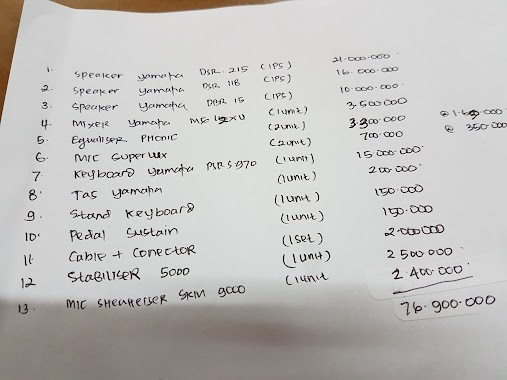 1. Speaker Yamaha DSR 215 (1PS) 21.000.000
2. Speaker Yamaha DSR 118 (1PS) 16.000.000
3. Speaker Yamaha DBR 15 (1PS) 10.000.000
4. Mixer Yamaha MG 12XU (1unit) 3.500.000
5. Equaliser PHONIC (2unit) 3.300.000
6. MIC Superlux (2unit) 700.000 @ 350.000
7. Keyboard Yamaha PSR S970 (1unit) 15.000.000
8. Tas Yamaha (1unit) 200.000
9. Stand Keyboard (1unit) 150.000
10. Pedal Sustain (1unit) 150.000
11. Cable + Conector (1set) 2.000.000
12 Stabiliser 5000 (1unit) 2.500.000
13. MIC Sheuheiser SKM 9000 (1unit 2.400.000
76.900.000